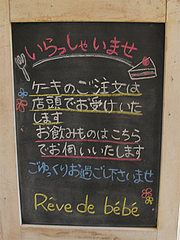 いらっしゃいませ
ケーキのご注文は
店頭でお受けいた
します
お飲みものはこちら
でお伺いいたします
ごゆっくりお過ごし下さいませ
Rêve de bébé